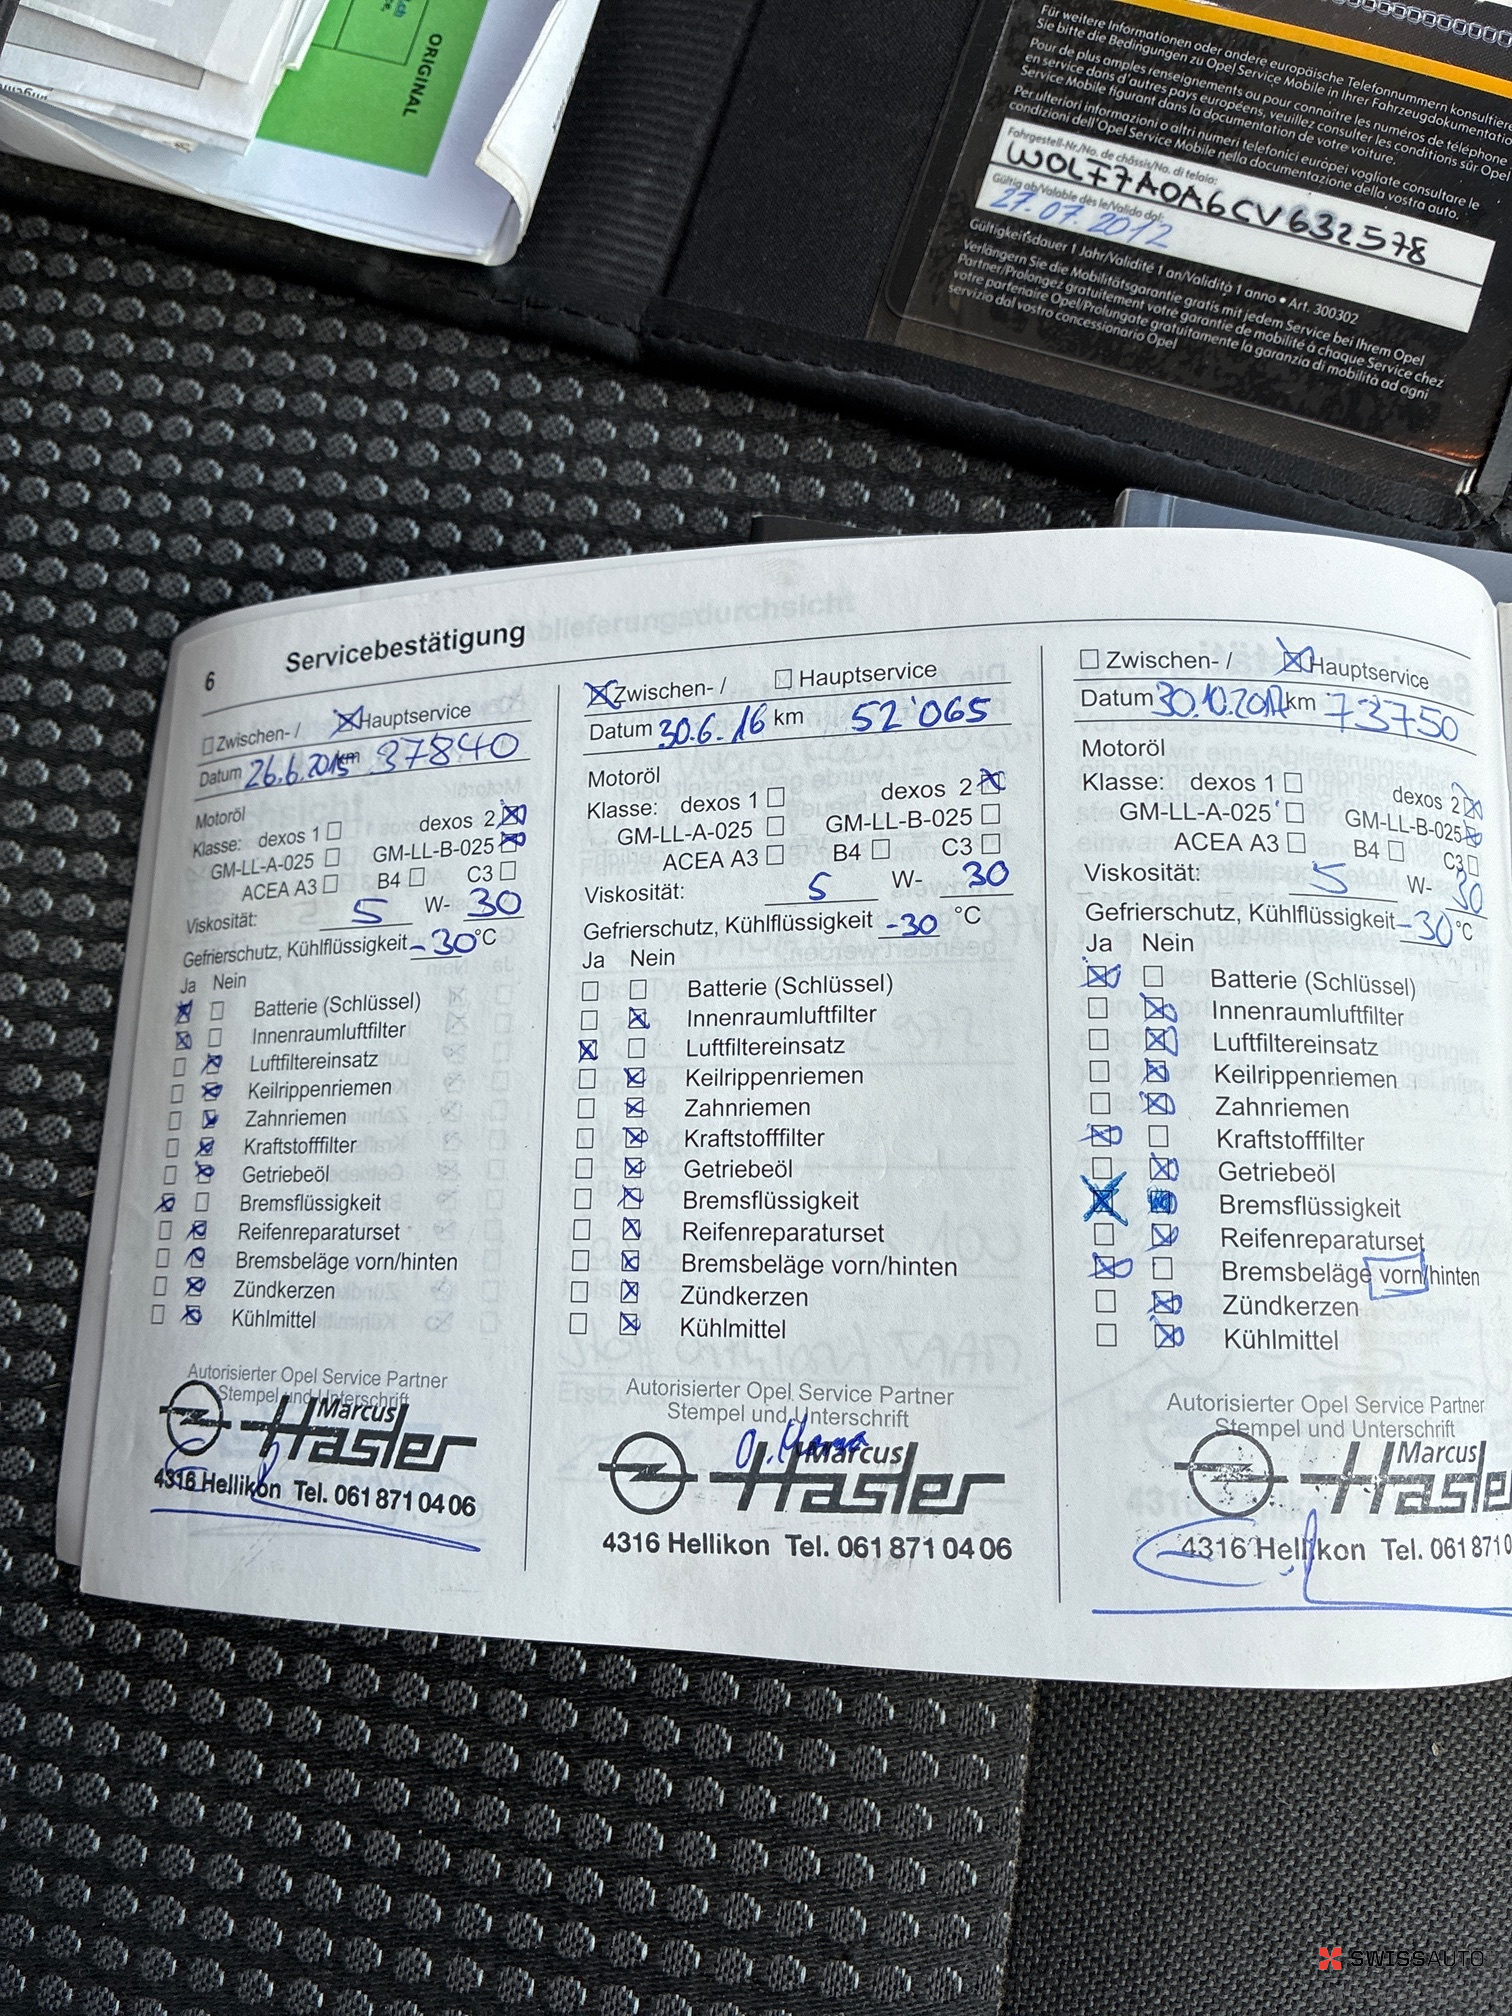 ORIGINAL
Für weitere Informationen oder andere europäische Telefonnummern konsultieren
Sie bitte die Bedingungen zu Opel Service Mobile in Ihrer Fahrzeugdokumentation
Pour de plus amples renseignements ou pour connaître les numéros de téléphone
en service dans d'autres pays européens, veuillez consulter les conditions sur Opel
Service Mobile figurant dans la documentation de votre voiture.
Per ulteriori informazioni o altri numeri telefonici europei vogliate consultare le
condizioni dell'Opel Service Mobile nella documentazione della vostra auto.
Fahrgestell-Nr./No. de châssis/No. di telaio:
W0LF7A0A6CV632578
Gültig ab/Valable dès le/Valido dal:
27.07.2012
Gültigkeitsdauer 1 Jahr/Validité 1 an/Validità 1 anno • Art. 300302
Verlängern Sie die Mobilitätsgarantie gratis mit jedem Service bei Ihrem Opel
Partner/Prolongez gratuitement votre garantie de mobilité à chaque Service chez
votre partenaire Opel/Prolungate gratuitamente la garanzia di mobilità ad ogni
servizio dal vostro concessionario Opel
6 Servicebestätigung
Zwischen- / Hauptservice
Datum 26.6.2015 km 37840
Motoröl
Klasse: dexos 1 dexos 2
GM-LL-A-025 GM-LL-B-025
ACEA A3 B4 C3
Viskosität: 5 W- 30
Gefrierschutz, Kühlflüssigkeit -30 °C
Ja Nein
Batterie (Schlüssel)
Innenraumluftfilter
Luftfiltereinsatz
Keilrippenriemen
Zahnriemen
Kraftstofffilter
Getriebeöl
Bremsflüssigkeit
Reifenreparaturset
Bremsbeläge vorn/hinten
Zündkerzen
Kühlmittel
Autorisierter Opel Service Partner
Stempel und Unterschrift
Marcus
Hasler
4316 Hellikon Tel. 061 871 04 06
Zwischen- / Hauptservice
Datum 30.6.16 km 52'065
Motoröl
Klasse: dexos 1 dexos 2
GM-LL-A-025 GM-LL-B-025
ACEA A3 B4 C3
Viskosität: 5 W- 30
Gefrierschutz, Kühlflüssigkeit -30 °C
Ja Nein
Batterie (Schlüssel)
Innenraumluftfilter
Luftfiltereinsatz
Keilrippenriemen
Zahnriemen
Kraftstofffilter
Getriebeöl
Bremsflüssigkeit
Reifenreparaturset
Bremsbeläge vorn/hinten
Zündkerzen
Kühlmittel
Autorisierter Opel Service Partner
Stempel und Unterschrift
Marcus
Hasler
4316 Hellikon Tel. 061 871 04 06
Zwischen- / Hauptservice
Datum 30.10.2017 km 73750
Motoröl
Klasse: dexos 1 dexos 2
GM-LL-A-025 GM-LL-B-025
ACEA A3 B4 C3
Viskosität: 5 W- 30
Gefrierschutz, Kühlflüssigkeit -30 °C
Ja Nein
Batterie (Schlüssel)
Innenraumluftfilter
Luftfiltereinsatz
Keilrippenriemen
Zahnriemen
Kraftstofffilter
Getriebeöl
Bremsflüssigkeit
Reifenreparaturset
Bremsbeläge vorn/hinten
Zündkerzen
Kühlmittel
Autorisierter Opel Service Partner
Stempel und Unterschrift
Marcus
Hasle
4316 Hellikon Tel. 061 871 0
SWISSAUTO